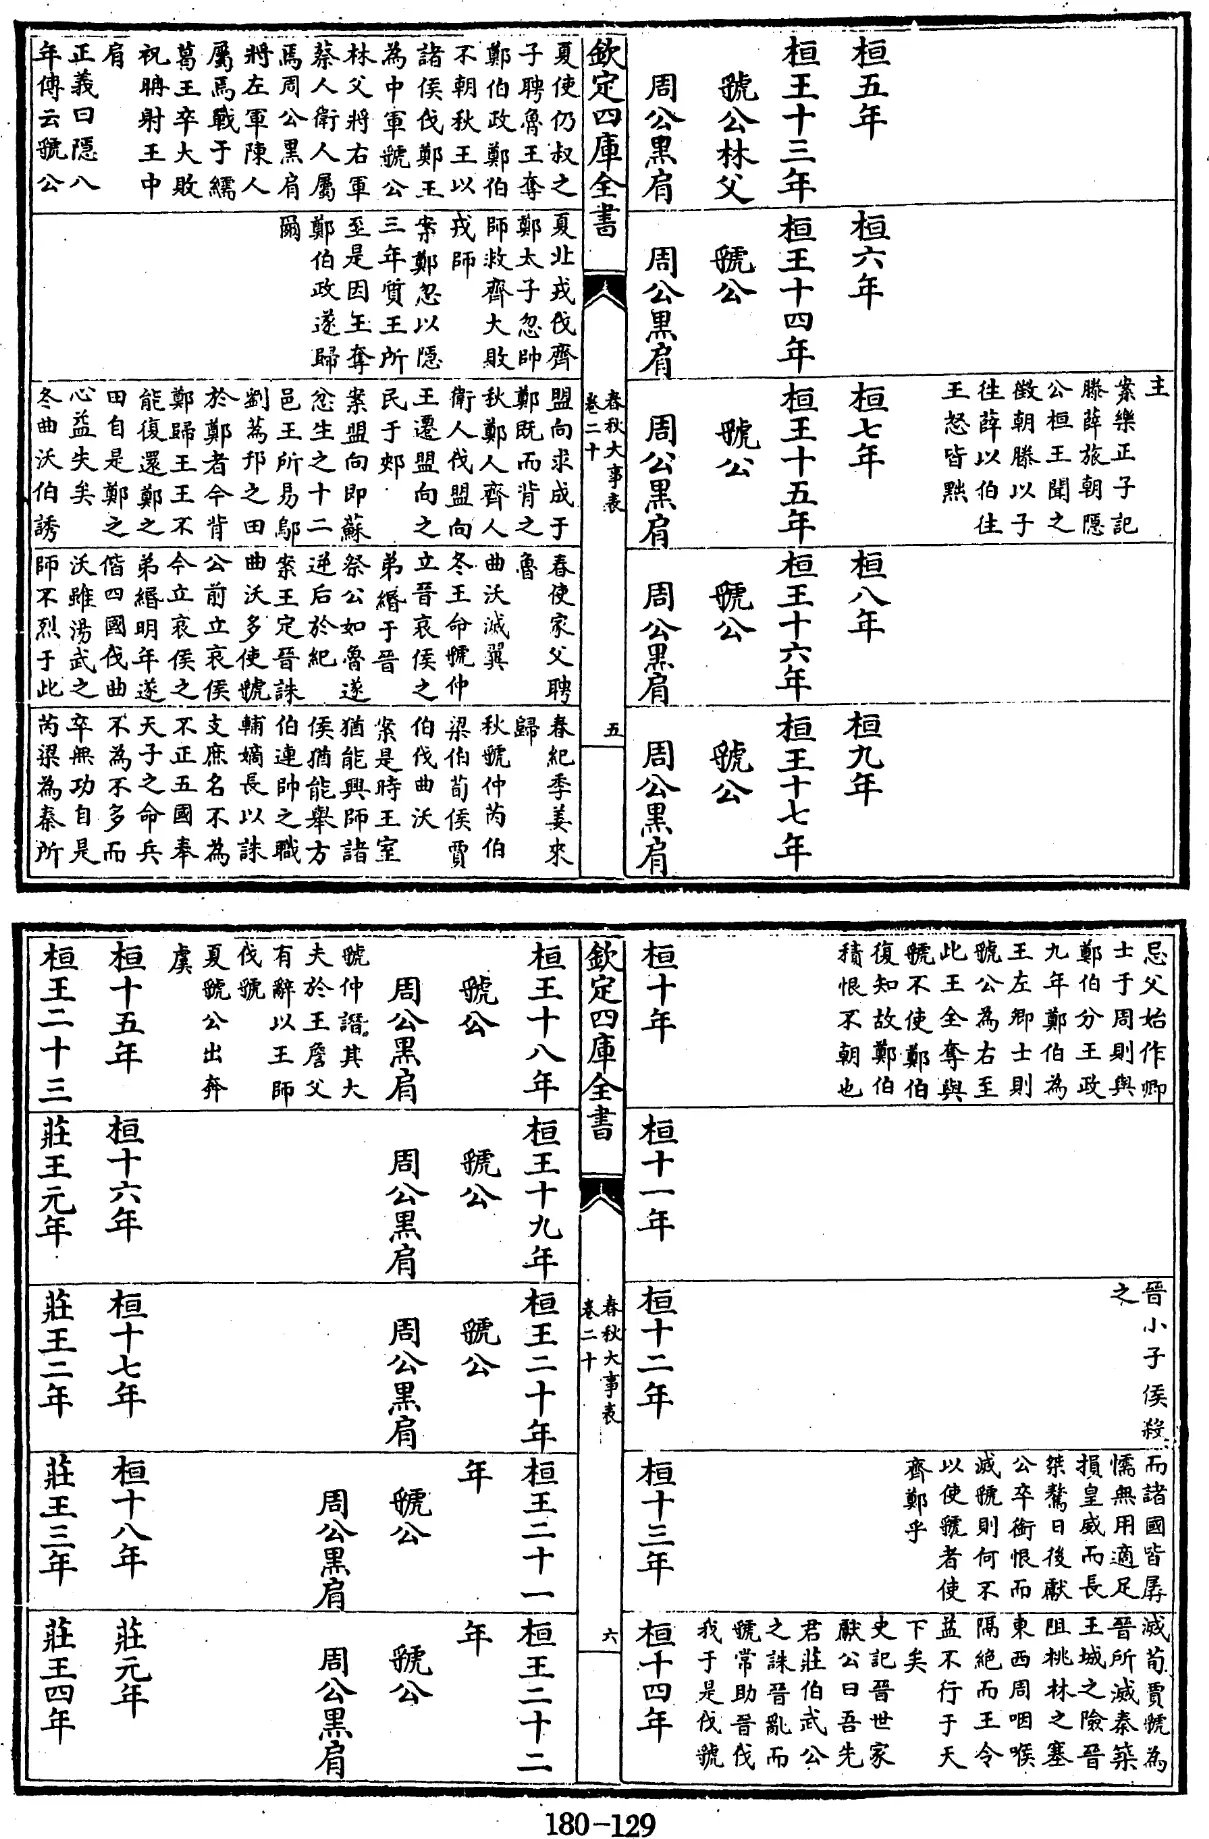 桓五年
桓王十三年
虢公林父
周公黑肩
桓六年
桓王十四年
虢公
周公黑肩
主
案樂正子記
滕薛旅朝隱
公桓王聞之
徵朝滕以子
徃薛以伯徃
王怒皆黜
桓七年
桓王十五年
虢公
周公黑肩
桓八年
桓王十六年
虢公
周公黑肩
桓九年
桓王十七年
虢公
周公黑肩
欽定四庫全書
春秋大事表
卷二十
五
夏使仍叔之
子聘魯王奪
鄭伯政鄭伯
不朝秋王以
諸侯伐鄭王
為中軍虢公
林父將右軍
蔡人衛人屬
焉周公黑肩
將左軍陳人
屬焉戰于繻
葛王卒大敗
祝聃射王中
肩
正義曰隱八
年傳云虢公
夏北戎伐齊
鄭太子忽帥
師救齊大敗
戎師
案鄭忽以隱
三年質王所
至是因王奪
鄭伯政遂歸
爾
盟向求成于
鄭既而背之
秋鄭人齊人
衛人伐盟向
王遷盟向之
民于郟
案盟向即蘇
忿生之十二
邑王所易鄔
劉蒍邘之田
於鄭者今背
鄭歸王王不
能復還鄭之
田自是鄭之
心益失矣
冬曲沃伯誘
春使家父聘
魯
曲沃滅翼
冬王命虢仲
立晉哀侯之
弟緡于晉
祭公如魯遂
逆后於紀
案王定晉誅
曲沃多使虢
公前立哀侯
今立哀侯之
弟緡明年遂
偕四國伐曲
沃雖湯武之
師不烈于此
春紀季姜來
歸
秋虢仲芮伯
梁伯荀侯賈
伯伐曲沃
案是時王室
猶能興師諸
侯猶能舉方
伯連帥之職
輔嫡長以誅
支庶名不為
不正五國奉
天子之命兵
不為不多而
卒無功自是
芮梁為秦所
忌父始作卿
士于周則與
鄭伯分王政
九年鄭伯為
王左卿士則
虢公為右至
此王全奪與
虢不使鄭伯
復知故鄭伯
積恨不朝也
桓十年
桓十一年
晉小子侯殺
之
桓十二年
而諸國皆孱
懦無用適足
損皇威而長
桀驁日後獻
公卒銜恨而
滅虢則何不
以使虢者使
齊鄭乎
桓十三年
滅荀賈虢為
晉所滅秦築
王城之險晉
阻桃林之塞
東西周咽喉
隔絕而王令
益不行于天
下矣
史記晉世家
獻公曰吾先
君莊伯武公
之誅晉亂而
虢常助晉伐
我于是伐虢
桓十四年
欽定四庫全書
春秋大事表
卷二十
六
桓王十八年
虢公
周公黑肩
虢仲譖其大
夫於王詹父
有辭以王師
伐虢
夏虢公出奔
虞
桓十五年
桓王二十三
桓王十九年
虢公
周公黑肩
桓十六年
莊王元年
桓王二十年
虢公
周公黑肩
桓十七年
莊王二年
桓王二十一
年
虢公
周公黑肩
桓十八年
莊王三年
桓王二十二
年
虢公
周公黑肩
莊元年
莊王四年
180-129